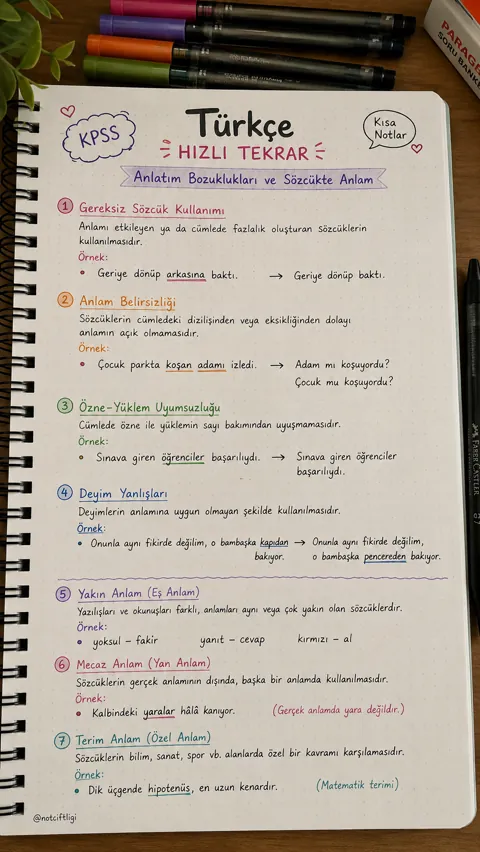 PARAGRAF
SORU BANKASI
KPSS
Türkçe
Kısa
Notlar
HIZLI TEKRAR
Anlatım Bozuklukları ve Sözcükte Anlam
1 Gereksiz Sözcük Kullanımı
Anlamı etkileyen ya da cümlede fazlalık oluşturan sözcüklerin
kullanılmasıdır.
Örnek:
• Geriye dönüp arkasına baktı. → Geriye dönüp baktı.
2 Anlam Belirsizliği
Sözcüklerin cümledeki dizilişinden veya eksikliğinden dolayı
anlamın açık olmamasıdır.
Örnek:
• Çocuk parkta koşan adamı izledi. → Adam mı koşuyordu?
Çocuk mu koşuyordu?
3 Özne-Yüklem Uyumsuzluğu
Cümlede özne ile yüklemin sayı bakımından uyuşmamasıdır.
Örnek:
• Sınava giren öğrenciler başarılıydı. → Sınava giren öğrenciler
başarılıydı.
4 Deyim Yanlışları
Deyimlerin anlamına uygun olmayan şekilde kullanılmasıdır.
Örnek:
• Onunla aynı fikirde değilim, o bambaşka kapıdan → Onunla aynı fikirde değilim,
bakıyor. o bambaşka pencereden bakıyor.
5 Yakın Anlam (Eş Anlam)
Yazılışları ve okunuşları farklı, anlamları aynı veya çok yakın olan sözcüklerdir.
Örnek:
• yoksul – fakir yanıt – cevap kırmızı – al
6 Mecaz Anlam (Yan Anlam)
Sözcüklerin gerçek anlamının dışında, başka bir anlamda kullanılmasıdır.
Örnek:
• Kalbindeki yaralar hâlâ kanıyor. (Gerçek anlamda yara değildir.)
7 Terim Anlam (Özel Anlam)
Sözcüklerin bilim, sanat, spor vb. alanlarda özel bir kavramı karşılamasıdır.
Örnek:
• Dik üçgende hipotenüs, en uzun kenardır. (Matematik terimi)
@notciftligi
FABER-CASTELL